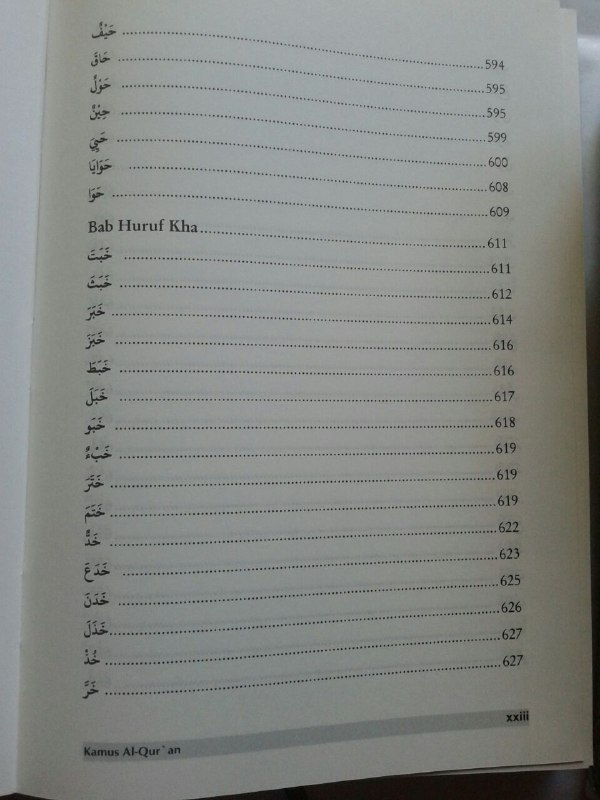 حَيْفٌ ........ 594
حَاقَ ........ 595
حَوْلٌ ........ 595
حِيْنٌ ........ 599
حَيِيَ ........ 600
حَوَايَا ........ 608
حَوَا ........ 609
Bab Huruf Kha ........ 611
خَبَتَ ........ 611
خَبَثَ ........ 612
خَبَرَ ........ 614
خَبَزَ ........ 616
خَبَطَ ........ 616
خَبَلَ ........ 617
خَبَو ........ 618
خَبْءٌ ........ 619
خَتَرَ ........ 619
خَتَمَ ........ 619
خَدٌّ ........ 622
خَدَعَ ........ 623
خَدَنَ ........ 625
خَذَلَ ........ 626
خُذْ ........ 627
خَرَّ ........ 627
xxiii
Kamus Al-Qur`an